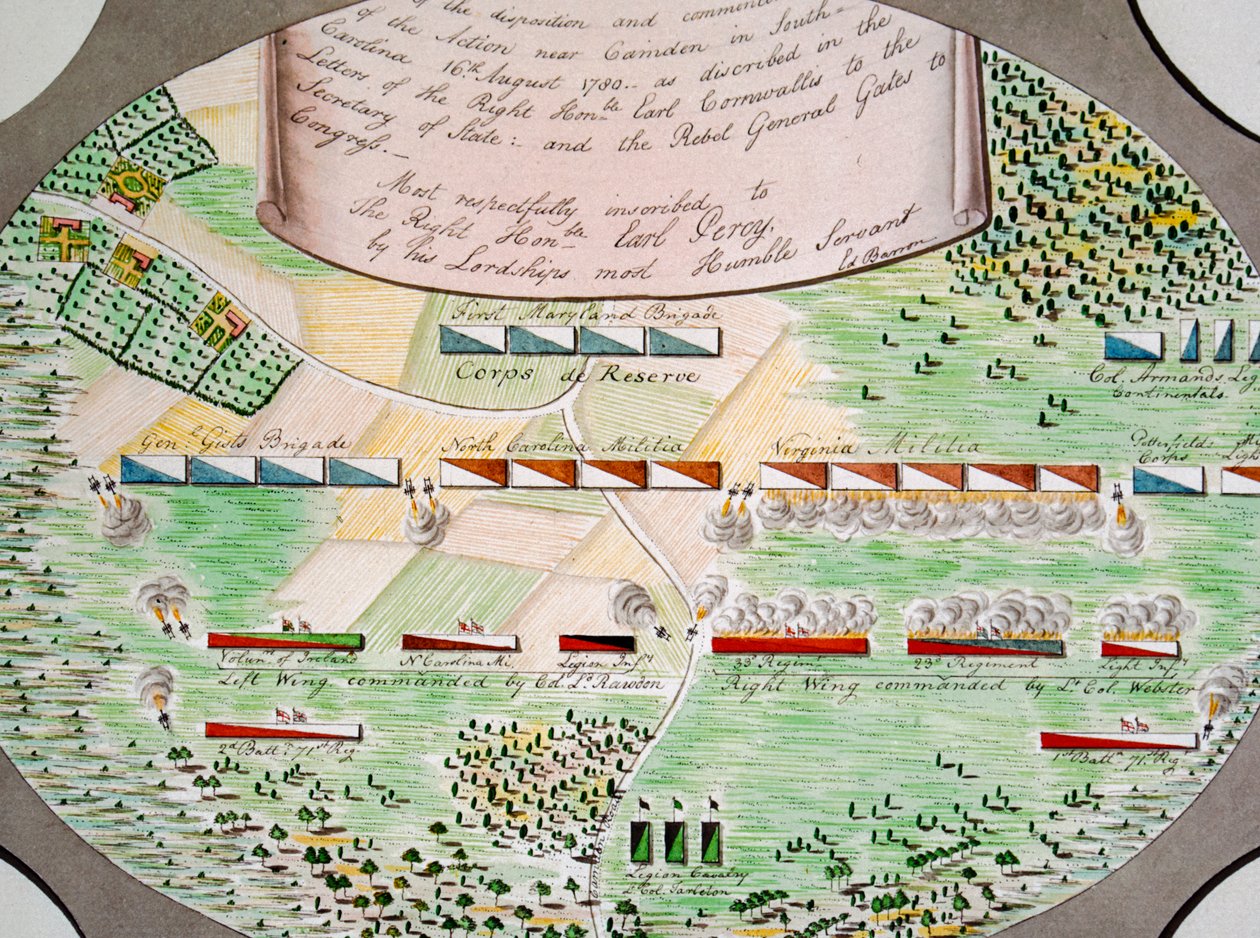 of the disposition and
of the Action near Camden in South=
Carolina 16th August 1780.– as discribed in the
Letters of the Right Honble Earl Cornwallis to the
Secretary of State:– and the Rebel General Gates to
Congreſs.–
Most respectfully inscribed to
The Right Honble Earl Percy,
by his Lordships most Humble Servant
Ed Barron
First Maryland Brigade
Corps de Reserve
Col. Armands
Continentals
Genl Gists Brigade
North Carolina Militia
Virginia Militia
Potterfields
Corps
Volunrs of Ireland
No Carolina Mi.
Legion Infry
33d Regimt
23d Regiment
Light Infy
Left Wing commanded by Col. Ld Rawdon
Right Wing commanded by Lt Col. Webster
2d Battn 71st Reg
1st Battn 71st Reg
Legion Cavalry
Lt Col. Tarleton